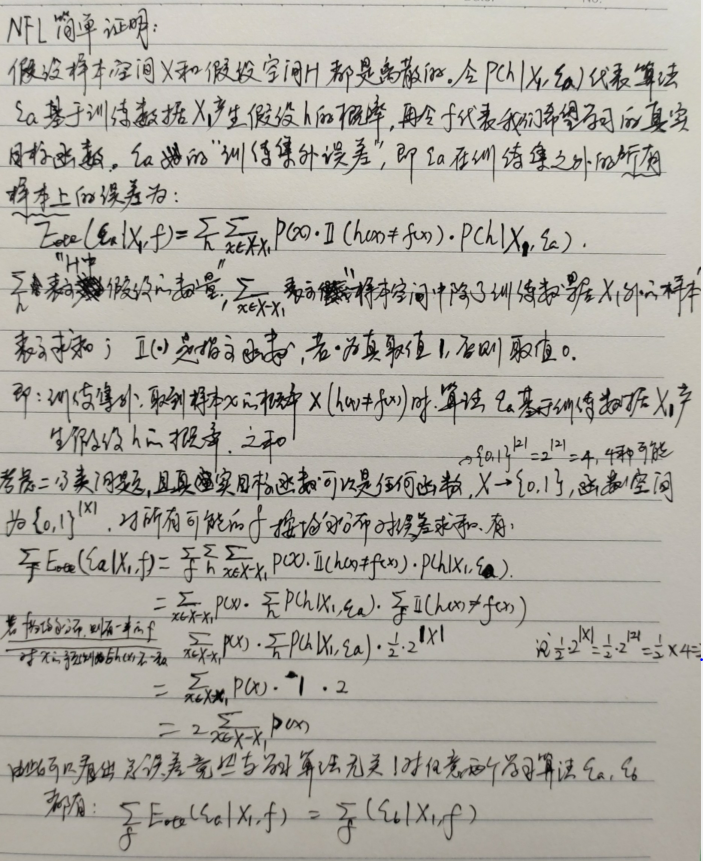 NFL 简单证明:
假设样本空间X和假设空间H都是离散的。令P(h|X₁,ξa)代表算法
ξa基于训练数据X₁产生假设h的概率,再令f代表我们希望学习的真实
目标函数。ξa的"训练集外误差",即ξa在训练集之外的所有
样本上的误差为:
Eote(ξa|X₁,f)=∑h ∑x∈X-X₁ P(x)·𝕀(h(x)≠f(x))·P(h|X₁,ξa).
∑h 表示"H中假设的数量", ∑x∈X-X₁ 表示"样本空间中除了训练数据X₁外的样本"
表示求和; 𝕀(·)是指示函数,若·为真取值1,否则取值0。
即:训练集外,取到样本x的概率×(h(x)≠f(x))时,算法ξa基于训练数据X₁产
生假设h的概率,之和
→{0,1}^|2|=2^|2|=4, 4种可能
考虑二分类问题,且真实目标函数可以是任何函数,X→{0,1},函数空间
为{0,1}^|X|,对所有可能的f按均匀分布对误差求和,有:
∑f Eote(ξa|X₁,f)=∑f ∑h ∑x∈X-X₁ P(x)·𝕀(h(x)≠f(x))·P(h|X₁,ξa).
=∑x∈X-X₁ P(x)·∑h P(h|X₁,ξa)·∑f 𝕀(h(x)≠f(x))
若f均匀分布,则有一半的f
对x的预测与h(x)不一致
∑x∈X-X₁ P(x)·∑h P(h|X₁,ξa)·½·2^|X|
½·2^|X|=½·2^|2|=½×4=
=∑x∈X-X₁ P(x)·1·2
=2∑x∈X-X₁ P(x)
由此可以看出总误差竟然与学习算法无关!对任意两个学习算法ξa,ξb
都有: ∑f Eote(ξa|X₁,f)=∑f(ξb|X₁,f)